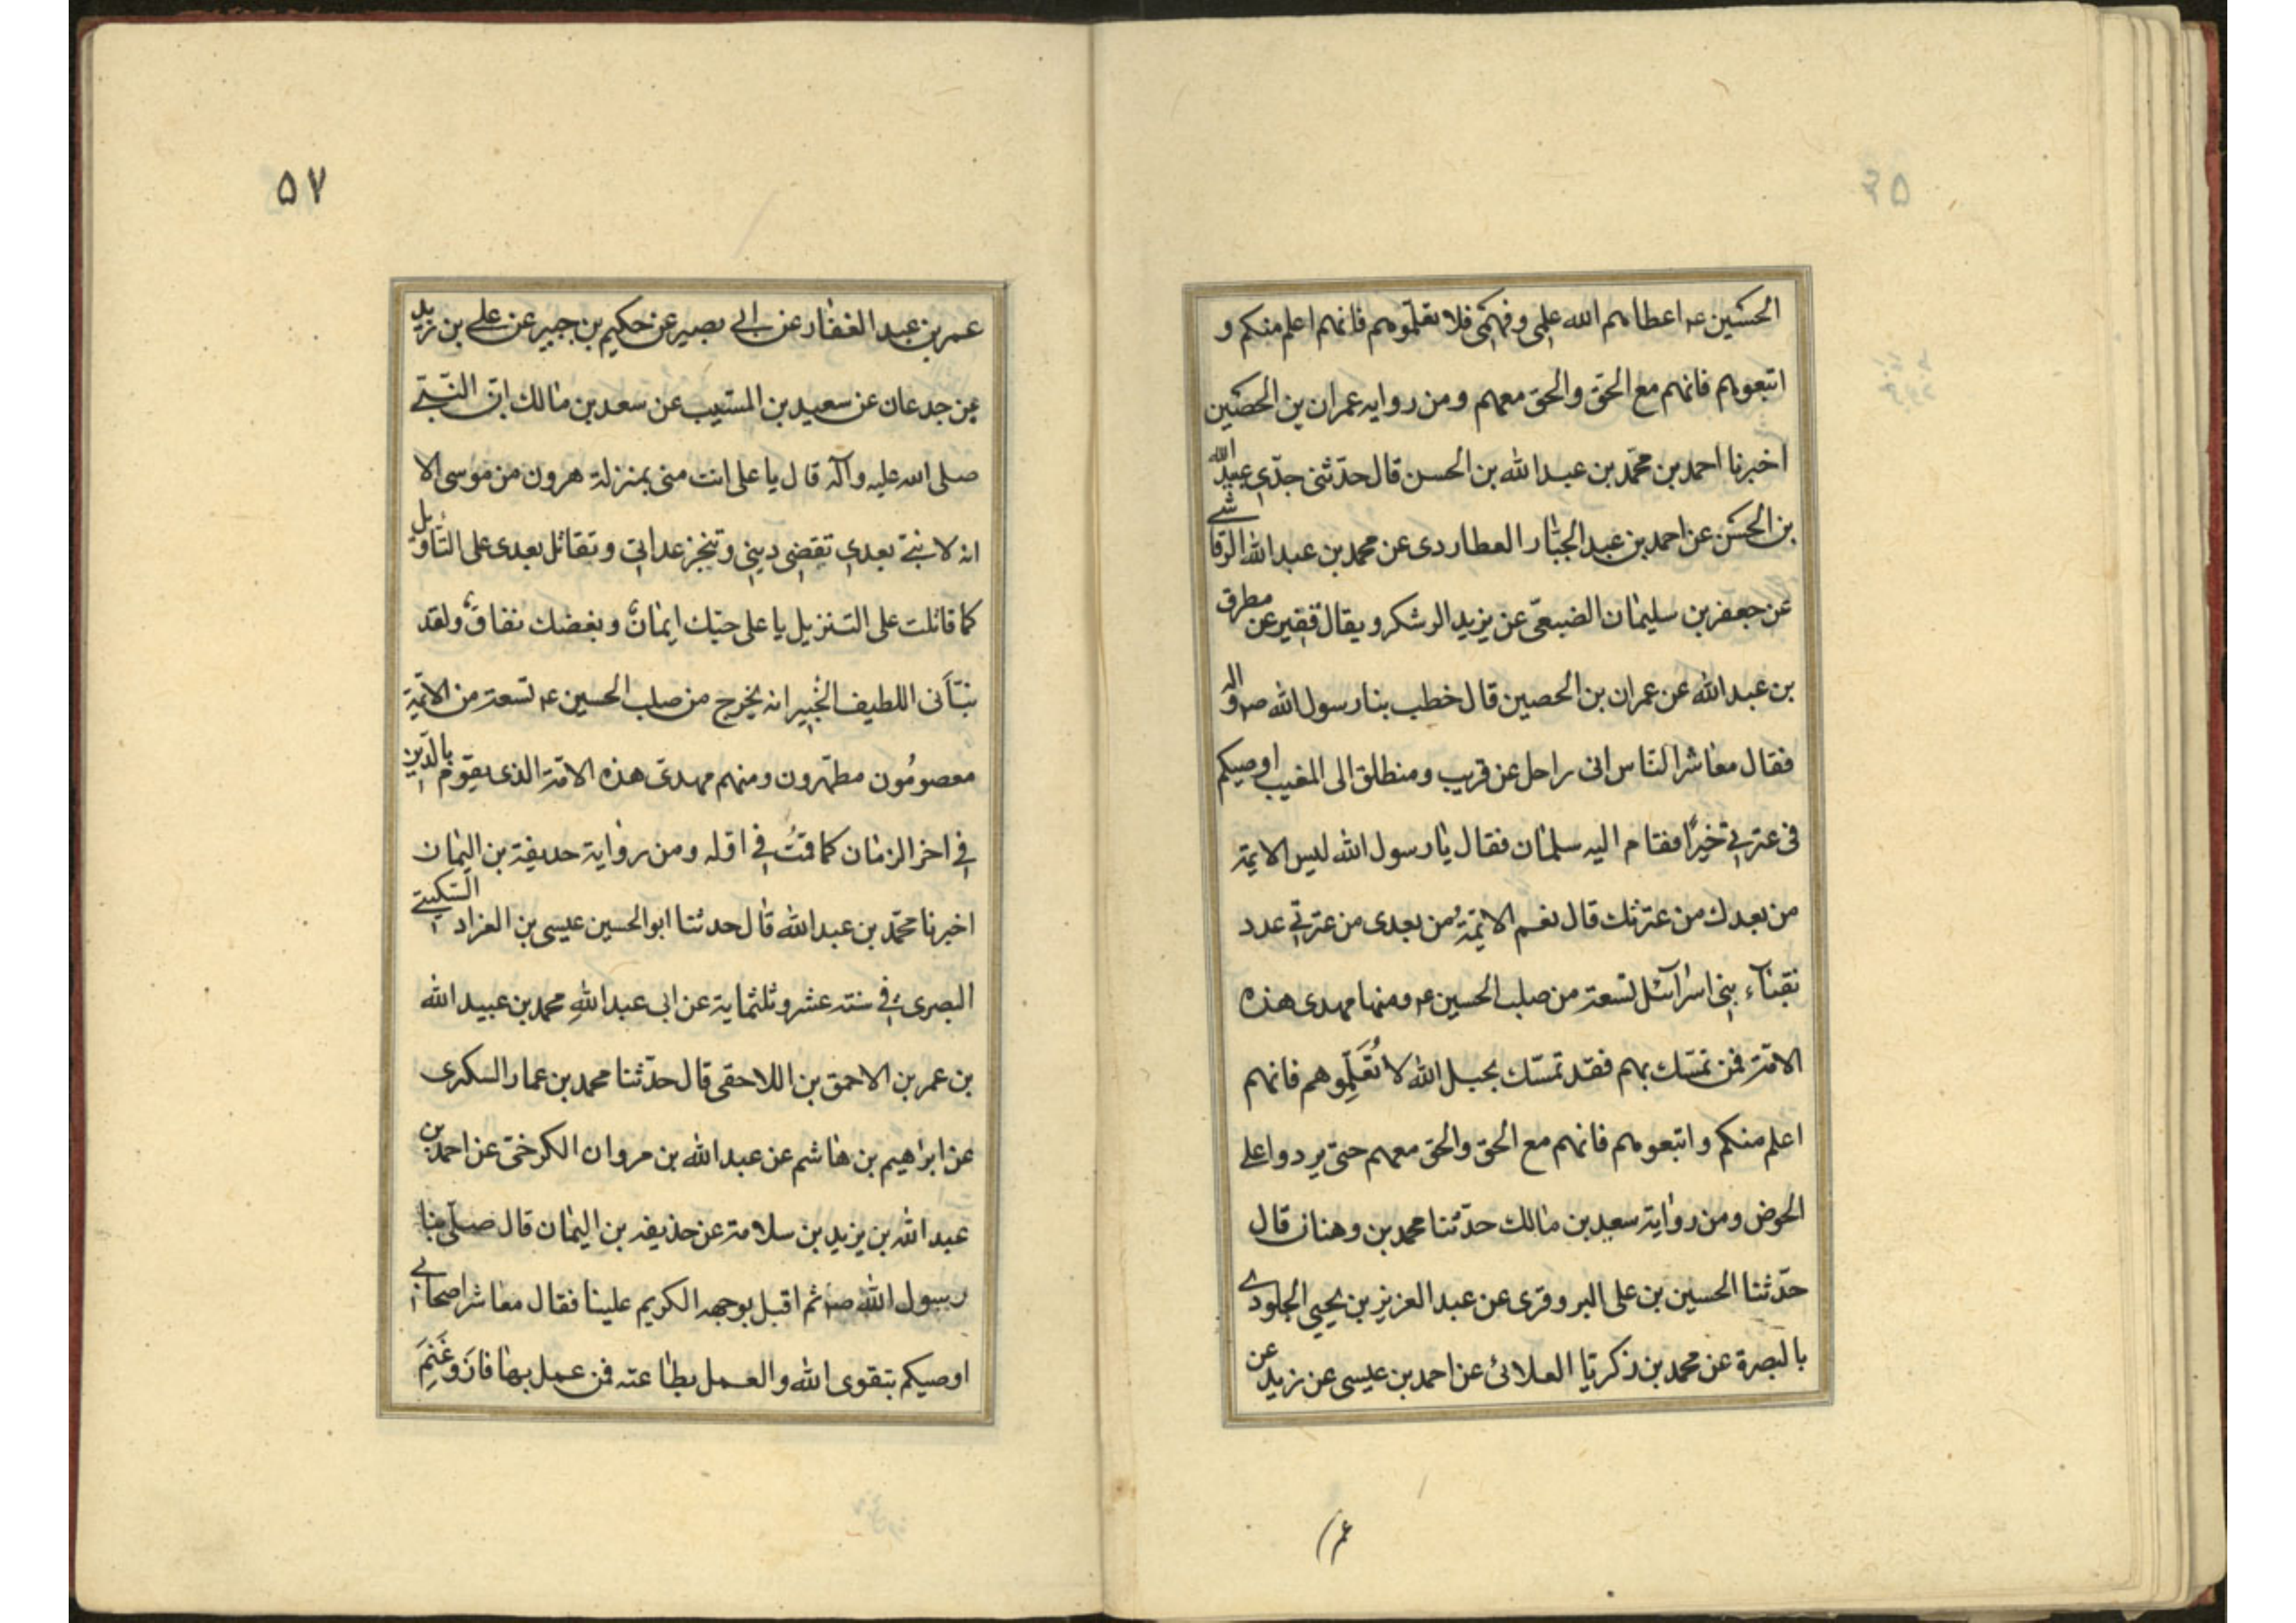 الحسين ع اعطاهم الله علمي وفهمي فلا تعلّموهم فانهم اعلم منكم و
اتبعوهم فانهم مع الحق والحق معهم ومن روايه عمران بن الحصين
اخبرنا احمد بن محمّد بن عبد الله بن الحسن قال حدّثنى جدّي عبيد الله
بن الحسن عن احمد بن عبد الجبّار العطاردى عن محمد بن عبد الله الرقاشے
عن جعفر بن سليمان الضبعىّ عن يزيد الرشكر ويقال فقير عن مطرف
بن عبد الله عن عمران بن الحصين قال خطب بنا رسول الله ص واله
فقال معاشر النّاس انى راحل عن قريب ومنطلق الى المغيب اوصيكم
فى عترتي خيرًا فقام اليه سلمان فقال يا رسول الله ليس الايمة
من بعدك من عترتك قال نعم الائمّةُ من بعدى من عترتي عدد
نقباء بنى اسرائيل تسعة من صلب الحسين ع ومنها مهدى هذه
الامّة فمن تمسّك بهم فقد تمسّك بحبل الله لا تُعَلِّموهم فانهم
اعلم منكم واتبعوهم فانهم مع الحق والحق معهم حتى يردوا على
الحوض ومن رواية سعد بن مالك حدّثنا محمد بن وهنان قال
حدّثنا الحسين بن على البروفرى عن عبد العزيز بن يحيي الجلودے
بالبصرة عن محمد بن زكريّا العلائى عن احمد بن عيسى عن زيد عن
عمر
٥٧
عمر بن عبد الغفار عن ابي بصير عن حكيم بن جبير عن علي بن زيد
بن جدعان عن سعيد بن المسيب عن سعد بن مالك انّ النّبيّ
صلى الله عليه وآله قال يا على انت منى بمنزلة هرون من موسى الا
انه لا نبىّ بعدي تقضي ديني وتنجز عداتي وتقاتل بعدى على التّأويل
كما قاتلت على التنزيل يا على حبّك ايمانٌ وبغضك نفاقٌ ولقد
نبّأنى اللطيف الخبير انه يخرج من صلب الحسين ع تسعة من الائمّة
معصومُون مطهّرون ومنهم مهدىّ هذه الامّة الذى يقوم بالدّين
في اخر الزمان كما قمتُ في اوله ومن رواية حديفة بن اليمان
اخبرنا محمّد بن عبد الله قال حدثنا ابو الحسين عيسى بن العراد السّكيني
البصرى في سنه عشر وثلثمايه عن ابى عبد اللهِ محمد بن عبيد الله
بن عمر بن الاحمق بن اللاحقى قال حدّثنا محمد بن عمار السكرى
عن ابراهيم بن هاشم عن عبد الله بن مروان الكرخىّ عن احمد بن
عبد الله بن يزيد بن سلامة عن حذيفه بن اليمان قال صلّى بنا
رسول الله ص ثم اقبل بوجهه الكريم علينا فقال معاشر اصحابي
اوصيكم بتقوى الله والعمل بطاعته فمن عمل بها فازَ وغَنِمَ